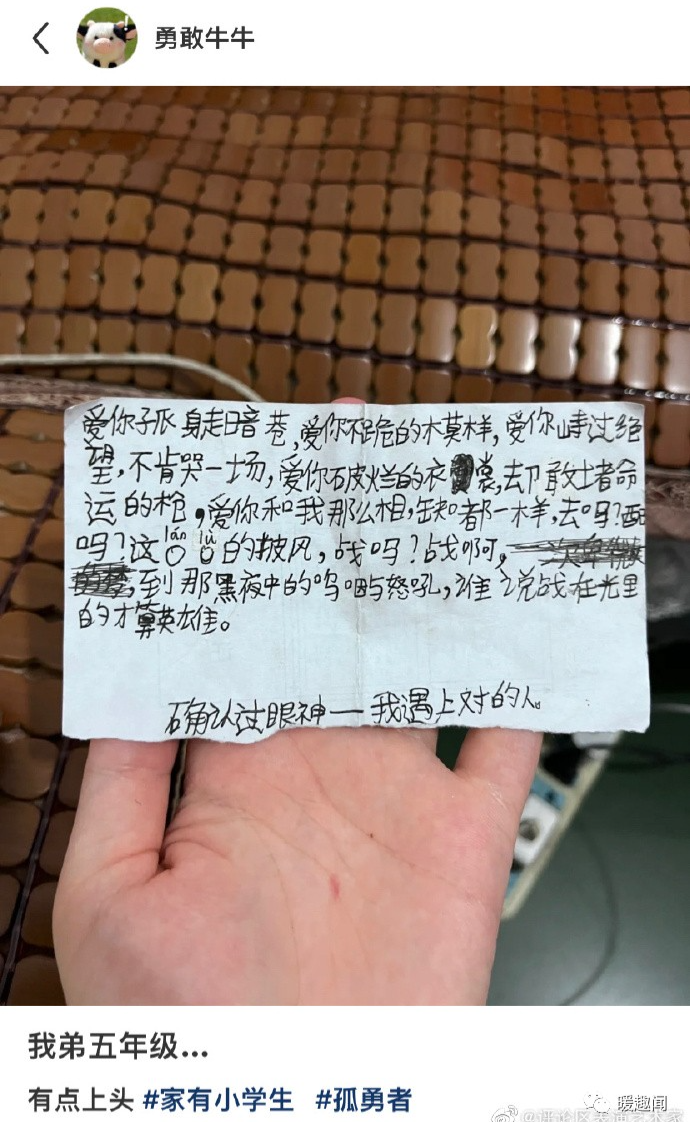 勇敢牛牛
爱你孤身走暗巷,爱你不跪的模样,爱你峙过绝
望,不肯哭一场,爱你破烂的衣裳,却敢堵命
运的枪,爱你和我那么相,缺都一样,去吗?配
吗?这lán lǚ的披风,战吗?战啊,
到那黑夜中的呜咽与怒吼,谁说战在光里
的才算英雄。
确认过眼神一我遇上对的人。
我弟五年级...
有点上头 #家有小学生 #孤勇者
暖趣闻